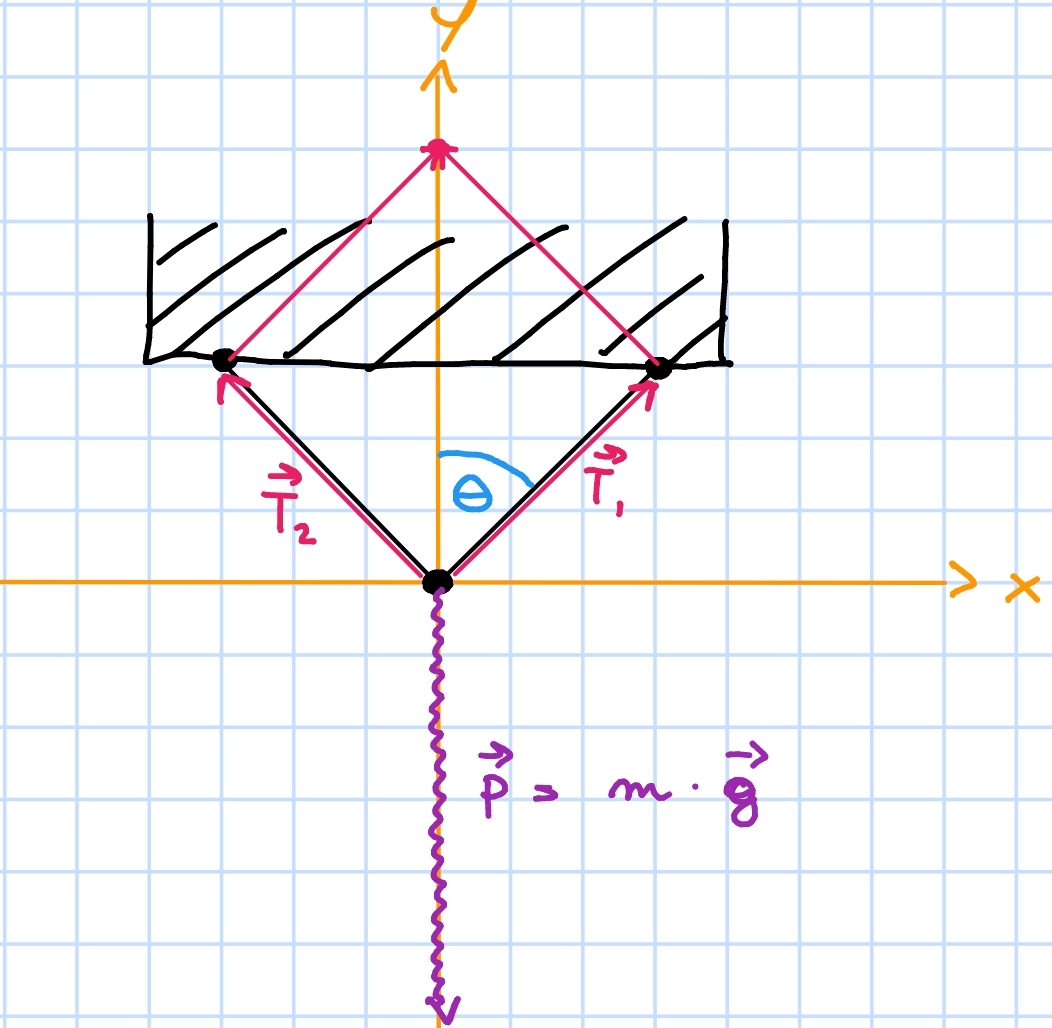 y
T⃗₂
θ
T⃗₁
x
p⃗ = m · g⃗